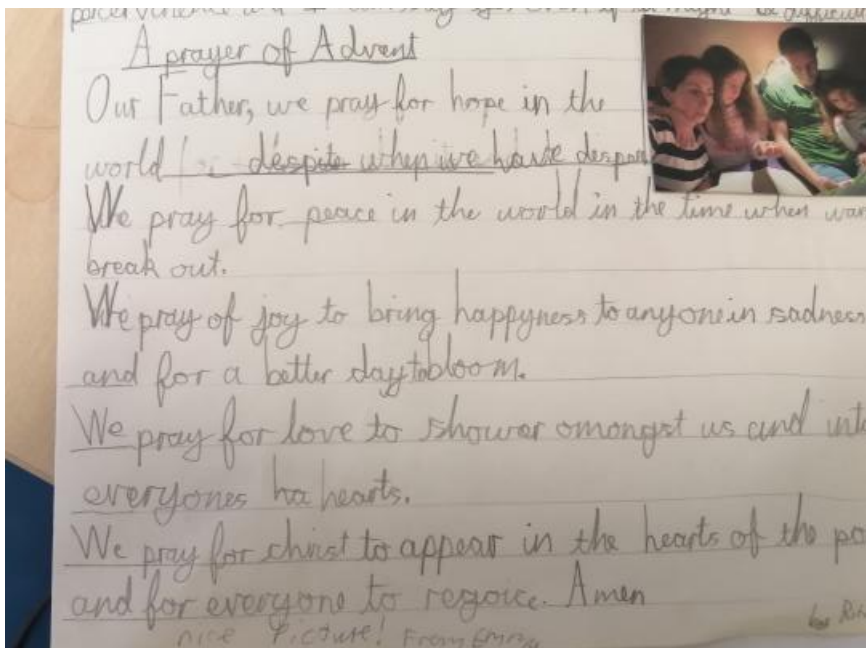 A prayer of Advent
Our Father, we pray for hope in the
world despite when we have
We pray for peace in the world in the time when war
break out.
We pray of joy to bring happyness to anyone in sadness
and for a better day to bloom.
We pray for love to shower omongst us and into
everyones ha hearts.
We pray for christ to appear in the hearts of the po
and for everyone to regoice. Amen
nice Picture! From Emma